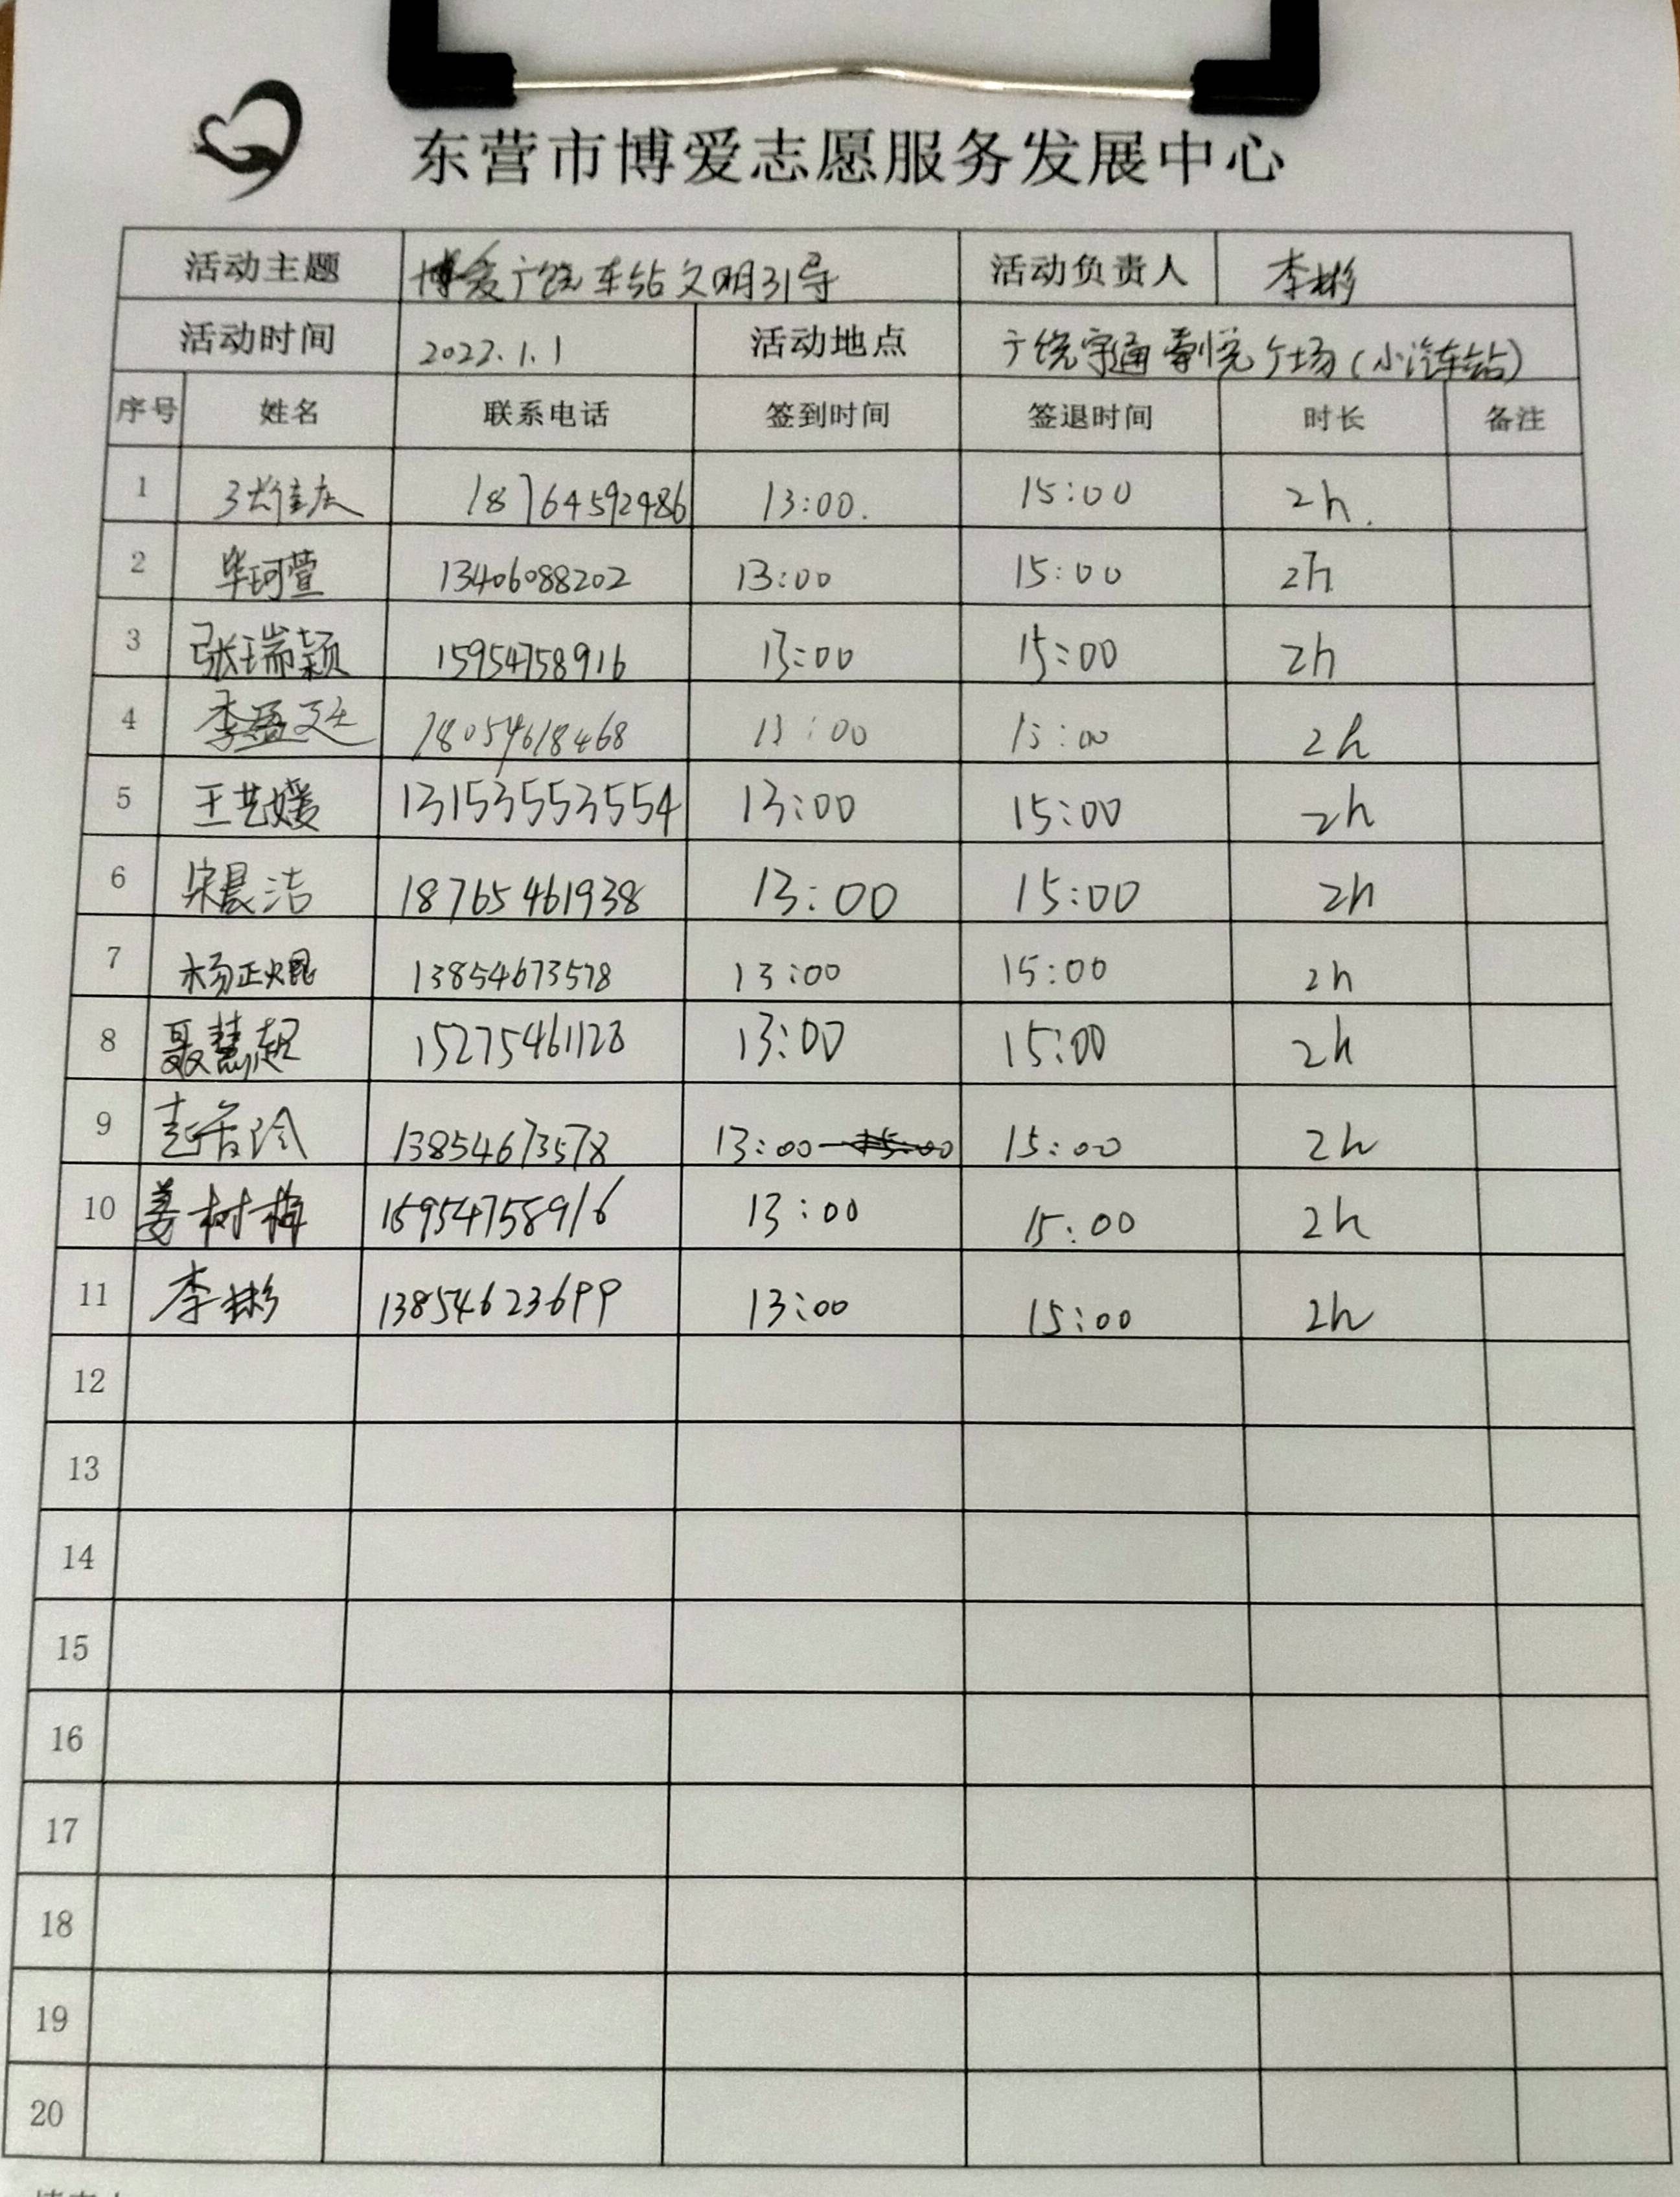 东营市博爱志愿服务发展中心
活动主题 博爱广饶车站文明引导 活动负责人 李彬
活动时间 2022.1.1 活动地点 广饶宇通 广场(小汽车站)
序号 姓名 联系电话 签到时间 签退时间 时长 备注
1 18764592486 13:00. 15:00 2h.
2 毕珂萱 13406088202 13:00 15:00 2h
3 张瑞颖 15954758916 13:00 15:00 2h
4 李 18054618468 13:00 15:00 2h
5 王艺媛 13153553554 13:00 15:00 2h
6 宋晨洁 18765461938 13:00 15:00 2h
7 杨正焜 13854673578 13:00 15:00 2h
8 聂慧超 15275461128 13:00 15:00 2h
9 13854673578 13:00 15:00 15:00 2h
10 姜树梅 15954758916 13:00 15:00 2h
11 李彬 13854623699 13:00 15:00 2h
12
13
14
15
16
17
18
19
20